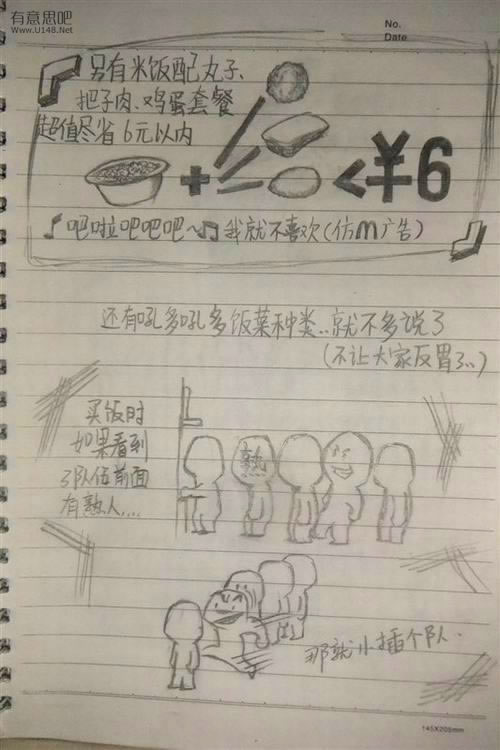 有意思吧
www.U148.Net
No.
Date
另有米饭配丸子、
把子肉、鸡蛋套餐
超值尽省 6元以内
+ <¥6
吧啦吧吧吧~ 我就不喜欢(仿m广告)
还有吼多吼多饭菜种类..就不多说了
(不让大家反胃了..)
买饭时
如果看到
了队伍前面
有熟人....
熟
那就小插个队.
145X205mm